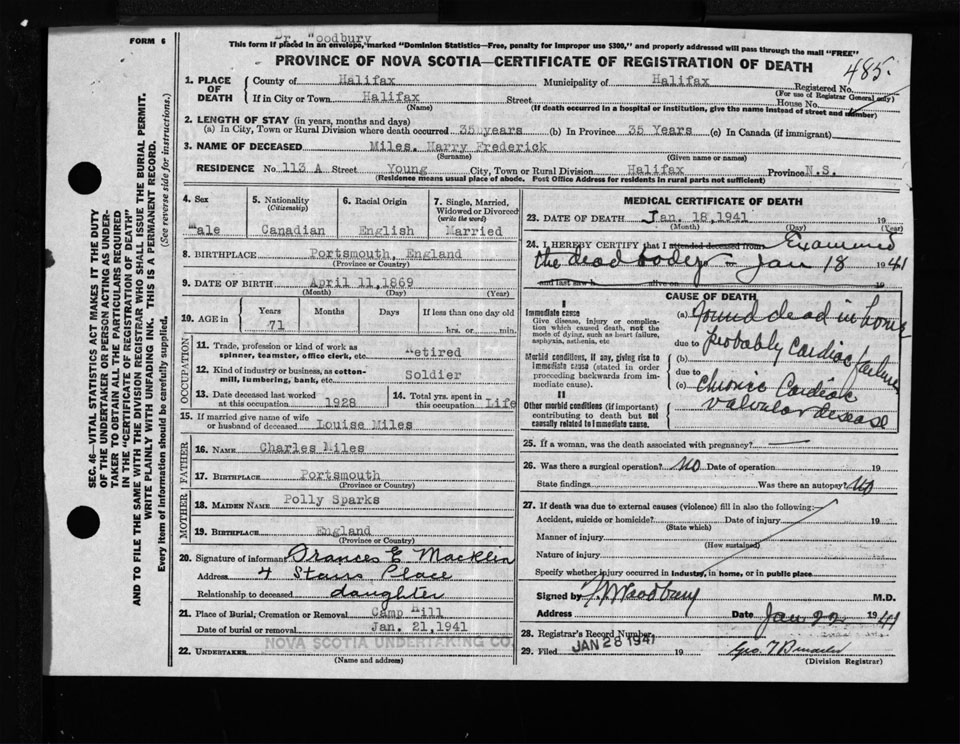 FORM 6
Dr. Woodbury
This form if placed in an envelope, marked "Dominion Statistics—Free, penalty for improper use $300," and properly addressed will pass through the mail "FREE"
PROVINCE OF NOVA SCOTIA—CERTIFICATE OF REGISTRATION OF DEATH
485.
1. PLACE OF DEATH
County of Halifax Municipality of Halifax Registered No.
(For use of Registrar General only)
If in City or Town Halifax Street House No.
(Name) (If death occurred in a hospital or institution, give the name instead of street and number)
2. LENGTH OF STAY (in years, months and days)
(a) In City, Town or Rural Division where death occurred 35 years (b) In Province 35 Years (c) In Canada (if immigrant)
3. NAME OF DECEASED Miles. Harry Frederick
(Surname) (Given name or names)
RESIDENCE No. 113 A Street Young City, Town or Rural Division Halifax Province N.S.
(Residence means usual place of abode. Post Office Address for residents in rural parts not sufficient)
4. Sex 5. Nationality (Citizenship) 6. Racial Origin 7. Single, Married, Widowed or Divorced (write the word)
Male Canadian English Married
8. BIRTHPLACE Portsmouth, England
(Province or Country)
9. DATE OF BIRTH April 11,1869
(Month) (Day) (Year)
10. AGE in Years Months Days If less than one day old
71 hrs. or min.
OCCUPATION
11. Trade, profession or kind of work as spinner, teamster, office clerk, etc. Retired
12. Kind of industry or business, as cotton-mill, lumbering, bank, etc. Soldier
13. Date deceased last worked at this occupation 1928 14. Total yrs. spent in this occupation Life
15. If married give name of wife or husband of deceased Louise Miles
FATHER
16. NAME Charles Miles
17. BIRTHPLACE Portsmouth
(Province or Country)
MOTHER
18. MAIDEN NAME Polly Sparks
19. BIRTHPLACE England
(Province or Country)
20. Signature of informant Frances E Macklin
Address 4 Stairs Place
Relationship to deceased daughter
21. Place of Burial, Cremation or Removal Camp Hill
Date of burial or removal Jan. 21,1941
22. UNDERTAKER NOVA SCOTIA UNDERTAKING CO.
(Name and address)
MEDICAL CERTIFICATE OF DEATH
23. DATE OF DEATH Jan. 18,1941 19
(Month) (Day) (Year)
24. I HEREBY CERTIFY that I attended deceased from Examined
the dead body – Jan 18 1941
and last saw h alive on
CAUSE OF DEATH
I
Immediate cause
Give disease, injury or complication which caused death, not the mode of dying, such as heart failure, asphyxia, asthenia, etc
Morbid conditions, if any, giving rise to immediate cause (stated in order proceeding backwards from immediate cause).
II
Other morbid conditions (if important) contributing to death but not causally related to immediate cause.
(a) found dead in home
due to probably cardiac failure
(b)
due to
(c) chronic Cardiac
valvular disease
25. If a woman, was the death associated with pregnancy?
26. Was there a surgical operation? No Date of operation 19
State findings Was there an autopsy? No
27. If death was due to external causes (violence) fill in also the following:
Accident, suicide or homicide? Date of injury 19
(State which)
Manner of injury
(How sustained)
Nature of injury
Specify whether injury occurred in industry, in home, or in public place
Signed by Woodbury M.D.
Address Date Jan 22 1941
28. Registrar's Record Number
29. Filed JAN 28 1941 19
(Division Registrar)
SEC. 46—VITAL STATISTICS ACT MAKES IT THE DUTY
OF THE UNDERTAKER OR PERSON ACTING AS UNDER-
TAKER TO OBTAIN ALL THE PARTICULARS REQUIRED
IN THE "CERTIFICATE OF REGISTRATION OF DEATH"
AND TO FILE THE SAME WITH THE DIVISION REGISTRAR WHO SHALL ISSUE THE BURIAL PERMIT.
WRITE PLAINLY WITH UNFADING INK. THIS IS A PERMANENT RECORD.
Every item of information should be carefully supplied. (See reverse side for instructions.)